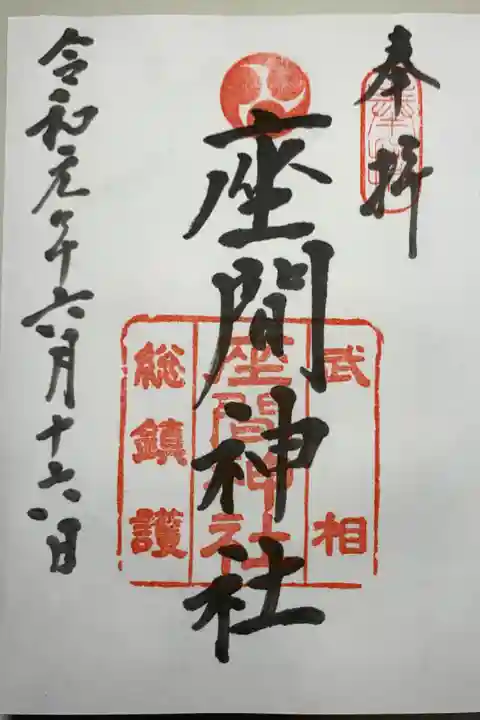 奉拝
奉拝
座間神社
武相
座間神社
総鎮護
令和元年六月十六日